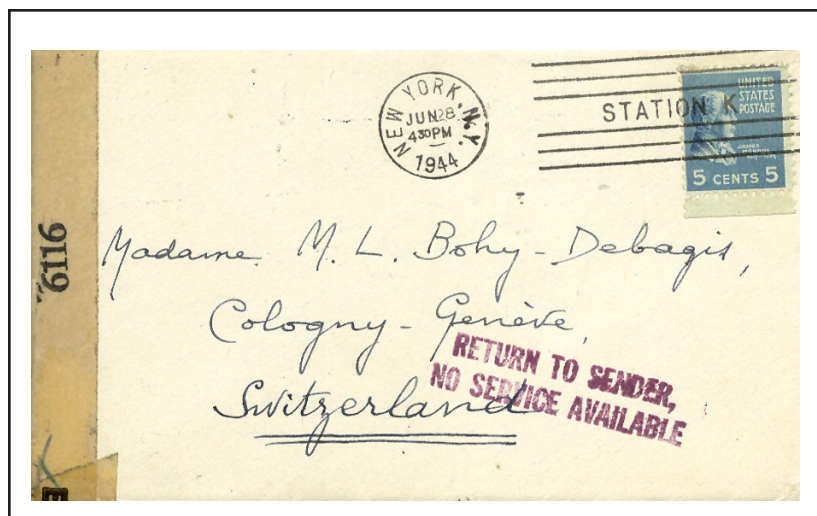 NEW YORK, N.Y.
JUN 28
4 30 PM
1944
STATION K
UNITED
STATES
POSTAGE
JAMES
MONROE
5 CENTS 5
6116
Madame M. L. Bohy-Debagis,
Cologny-Genève,
Switzerland
RETURN TO SENDER,
NO SERVICE AVAILABLE
E